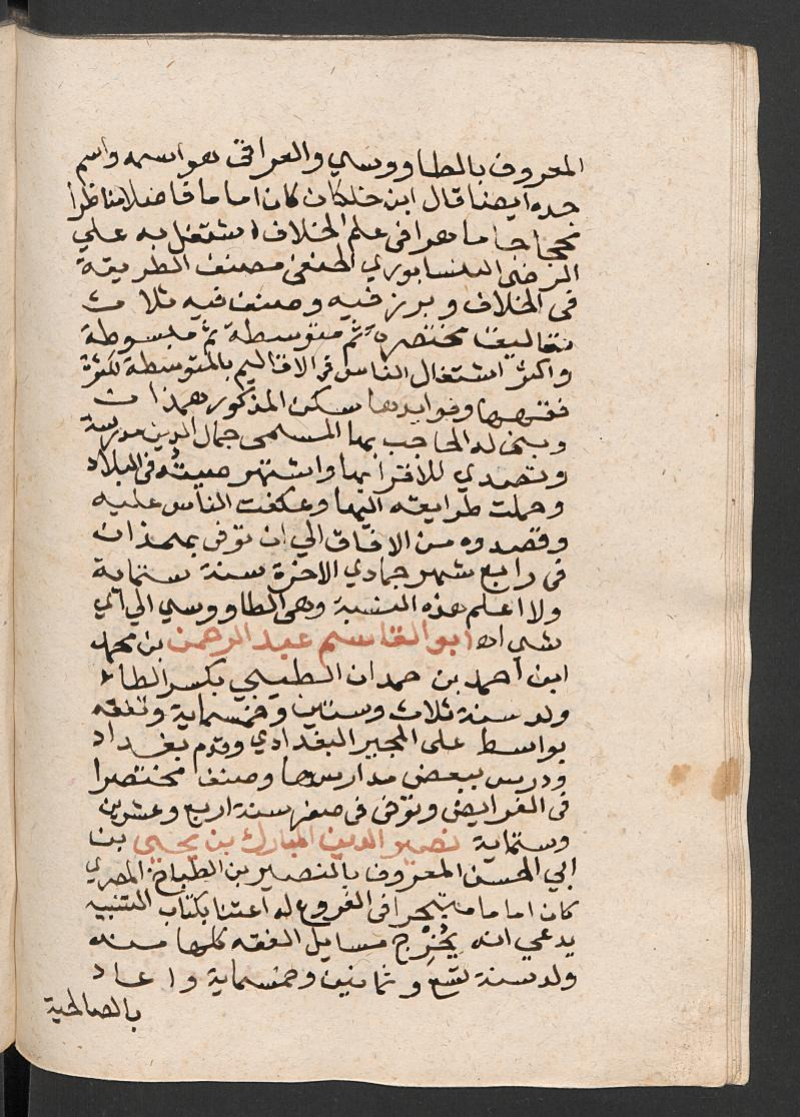 المعروف بالطاووسي والعراقي هو اسمه واسم
جده ايضا قال ابن خلكان كان اماما فاضلا مناظرا
محججا ماهرا في علم الخلاف اشتغل به علي
الرضى النيسابوري الحنفى مصنف الطريقة
في الخلاف وبرز فيه وصنف فيه ثلاث
تعاليق مختصرة ثم متوسطة ثم مبسوطة
واكثر اشتغال الناس في الاقاليم بالمتوسطة لكثرة
فقهها وفوايدها سكن المذكور همذان
وبنى له الحاجب بها المسمى جمال الدين مدرسة
وتصدي للاقرا بها واشتهر صيته في البلاد
وحملت طرايقه اليها وعكفت الناس عليه
وقصدوه من الافاق الي ان توفى بهمذان
في رابع شهر جمادي الاخرة سنة ستماية
ولا اعلم هذه النسبة وهى الطاووسي الي اي
شي اه ابو القاسم عبد الرحمن بن محمد
ابن احمد بن حمدان الطيبي بكسر الطاء
ولد سنة ثلاث وستين وخمسماية وتفقه
بواسط على المجير البغدادي وقدم بغداد
ودرس ببعض مدارسها وصنف مختصرا
في الفرايض وتوفى في صفر سنة اربع وعشرين
وستماية نصير الدين المبارك بن يحيى بن
ابي الحسن المعروف بالنصير بن الطباخ المصري
كان اماما متبحرا في الفروع له اعتنا بكتاب التنبيه
يدعي انه يُخْرِج مسايل الفقه كلها منه
ولد سنة تسع وثمانين وخمسماية واعاد
بالصالحية